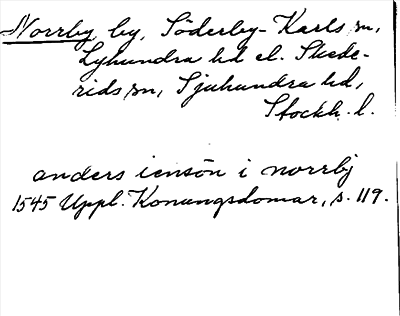 Norrby by, Söderby-Karls sn,
Lyhundra hd el. Skede-
rids sn, Sjuhundra hd,
Stockh. l.
anders iensön i norrbj
1545 Uppl. Konungsdomar, s. 119.